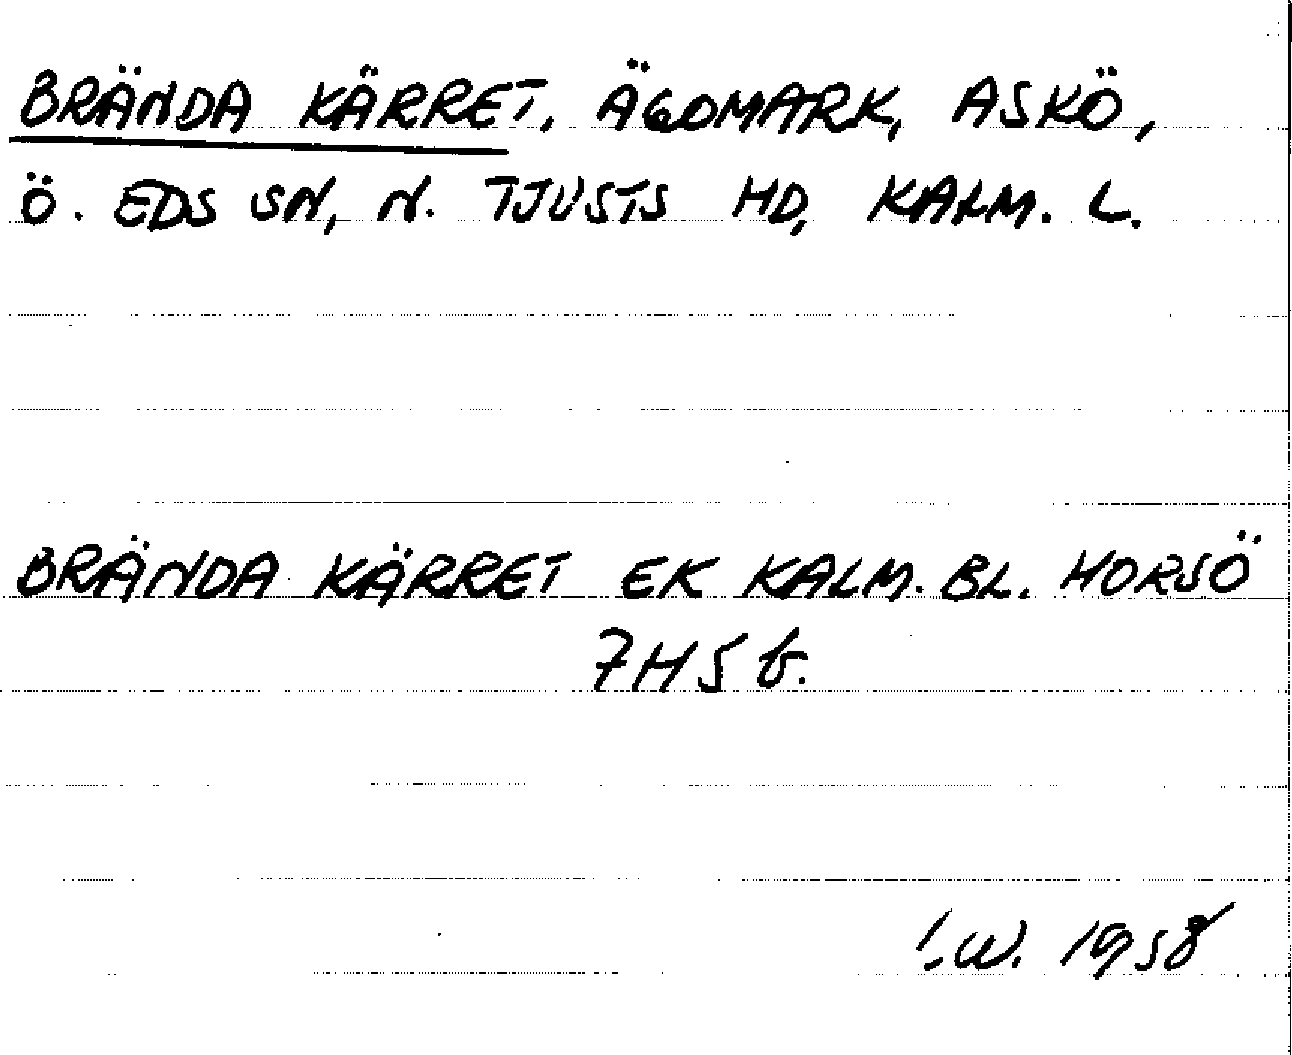 BRÄNDA KÄRRET, ÄGOMARK, ASKÖ,
Ö. EDS SN, N. TJUSTS HD, KALM. L.
BRÄNDA KÄRRET EK KALM. BL. HORSÖ
7H5b.
I.W. 1958